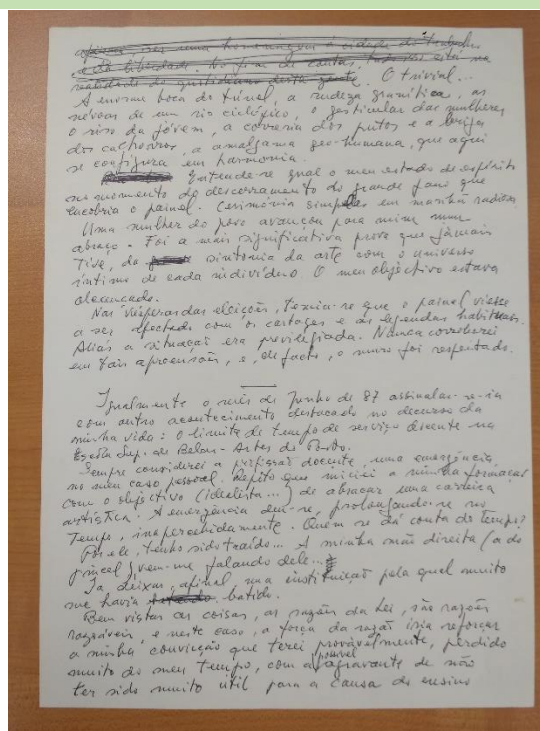 afinal ser uma homenagem à cidade do trabalho
e da liberdade. No fim de contas, tudo isto está na
realidade do quotidiano desta gente. O trivial...
A enorme boca do túnel, a rudeza granítica, as
névoas de um rio ciclópico, o gesticular das mulheres
o riso da jóvem, a correria dos putos e a briga
dos cachorros, a amálgama geo-humana, que aqui
se configura em harmonia.
Entende-se qual o meu estado de espírito
no momento do descerramento do grande pano que
encobria o painel. Cerimónia simples em manhã radiosa
Uma mulher do povo avançou para mim num
abraço. Foi a mais significativa prova que jámais
tive, da sintonia da arte com o universo
íntimo de cada indivíduo O meu objectivo estava
alcançado.
Nas vésperas das eleições, temia-se que o painel viesse
a ser afectado com os cartazes e as legendas habituais.
Aliás a situação era previlegiada. Nunca corroborei
em tais apreensões, e, de facto, o muro foi respeitado.
Igualmente o mês de Junho de 87 assinalar-se-ia
com outro acontecimento destacado no decurso da
minha vida: O limite de tempo de serviço docente na
Escola Sup. de Belas-Artes do Porto.
Sempre considerei a profissão docente, uma emergência
no meu caso pessoal. Repito que iniciei a minha formação
com o objectivo (idealista...) de abraçar uma carreira
artística. A emergência deu-se, prolongando-se no
tempo, inapercebidamente. Quem se dá conta do tempo?
Por ele, tenho sido traído... A minha mão direita (a do
pincel) vem-me falando dele...
Ia deixar, afinal, uma instituição pela qual muito
me havia batido.
Bem vistas as coisas, as razões da Lei, são razões
razoáveis, e neste caso, a força da razão iria reforçar
a minha convicção que terei provávelmente, perdido
muito do meu tempo, com a possível agravante de não
ter sido muito útil para a causa do ensino